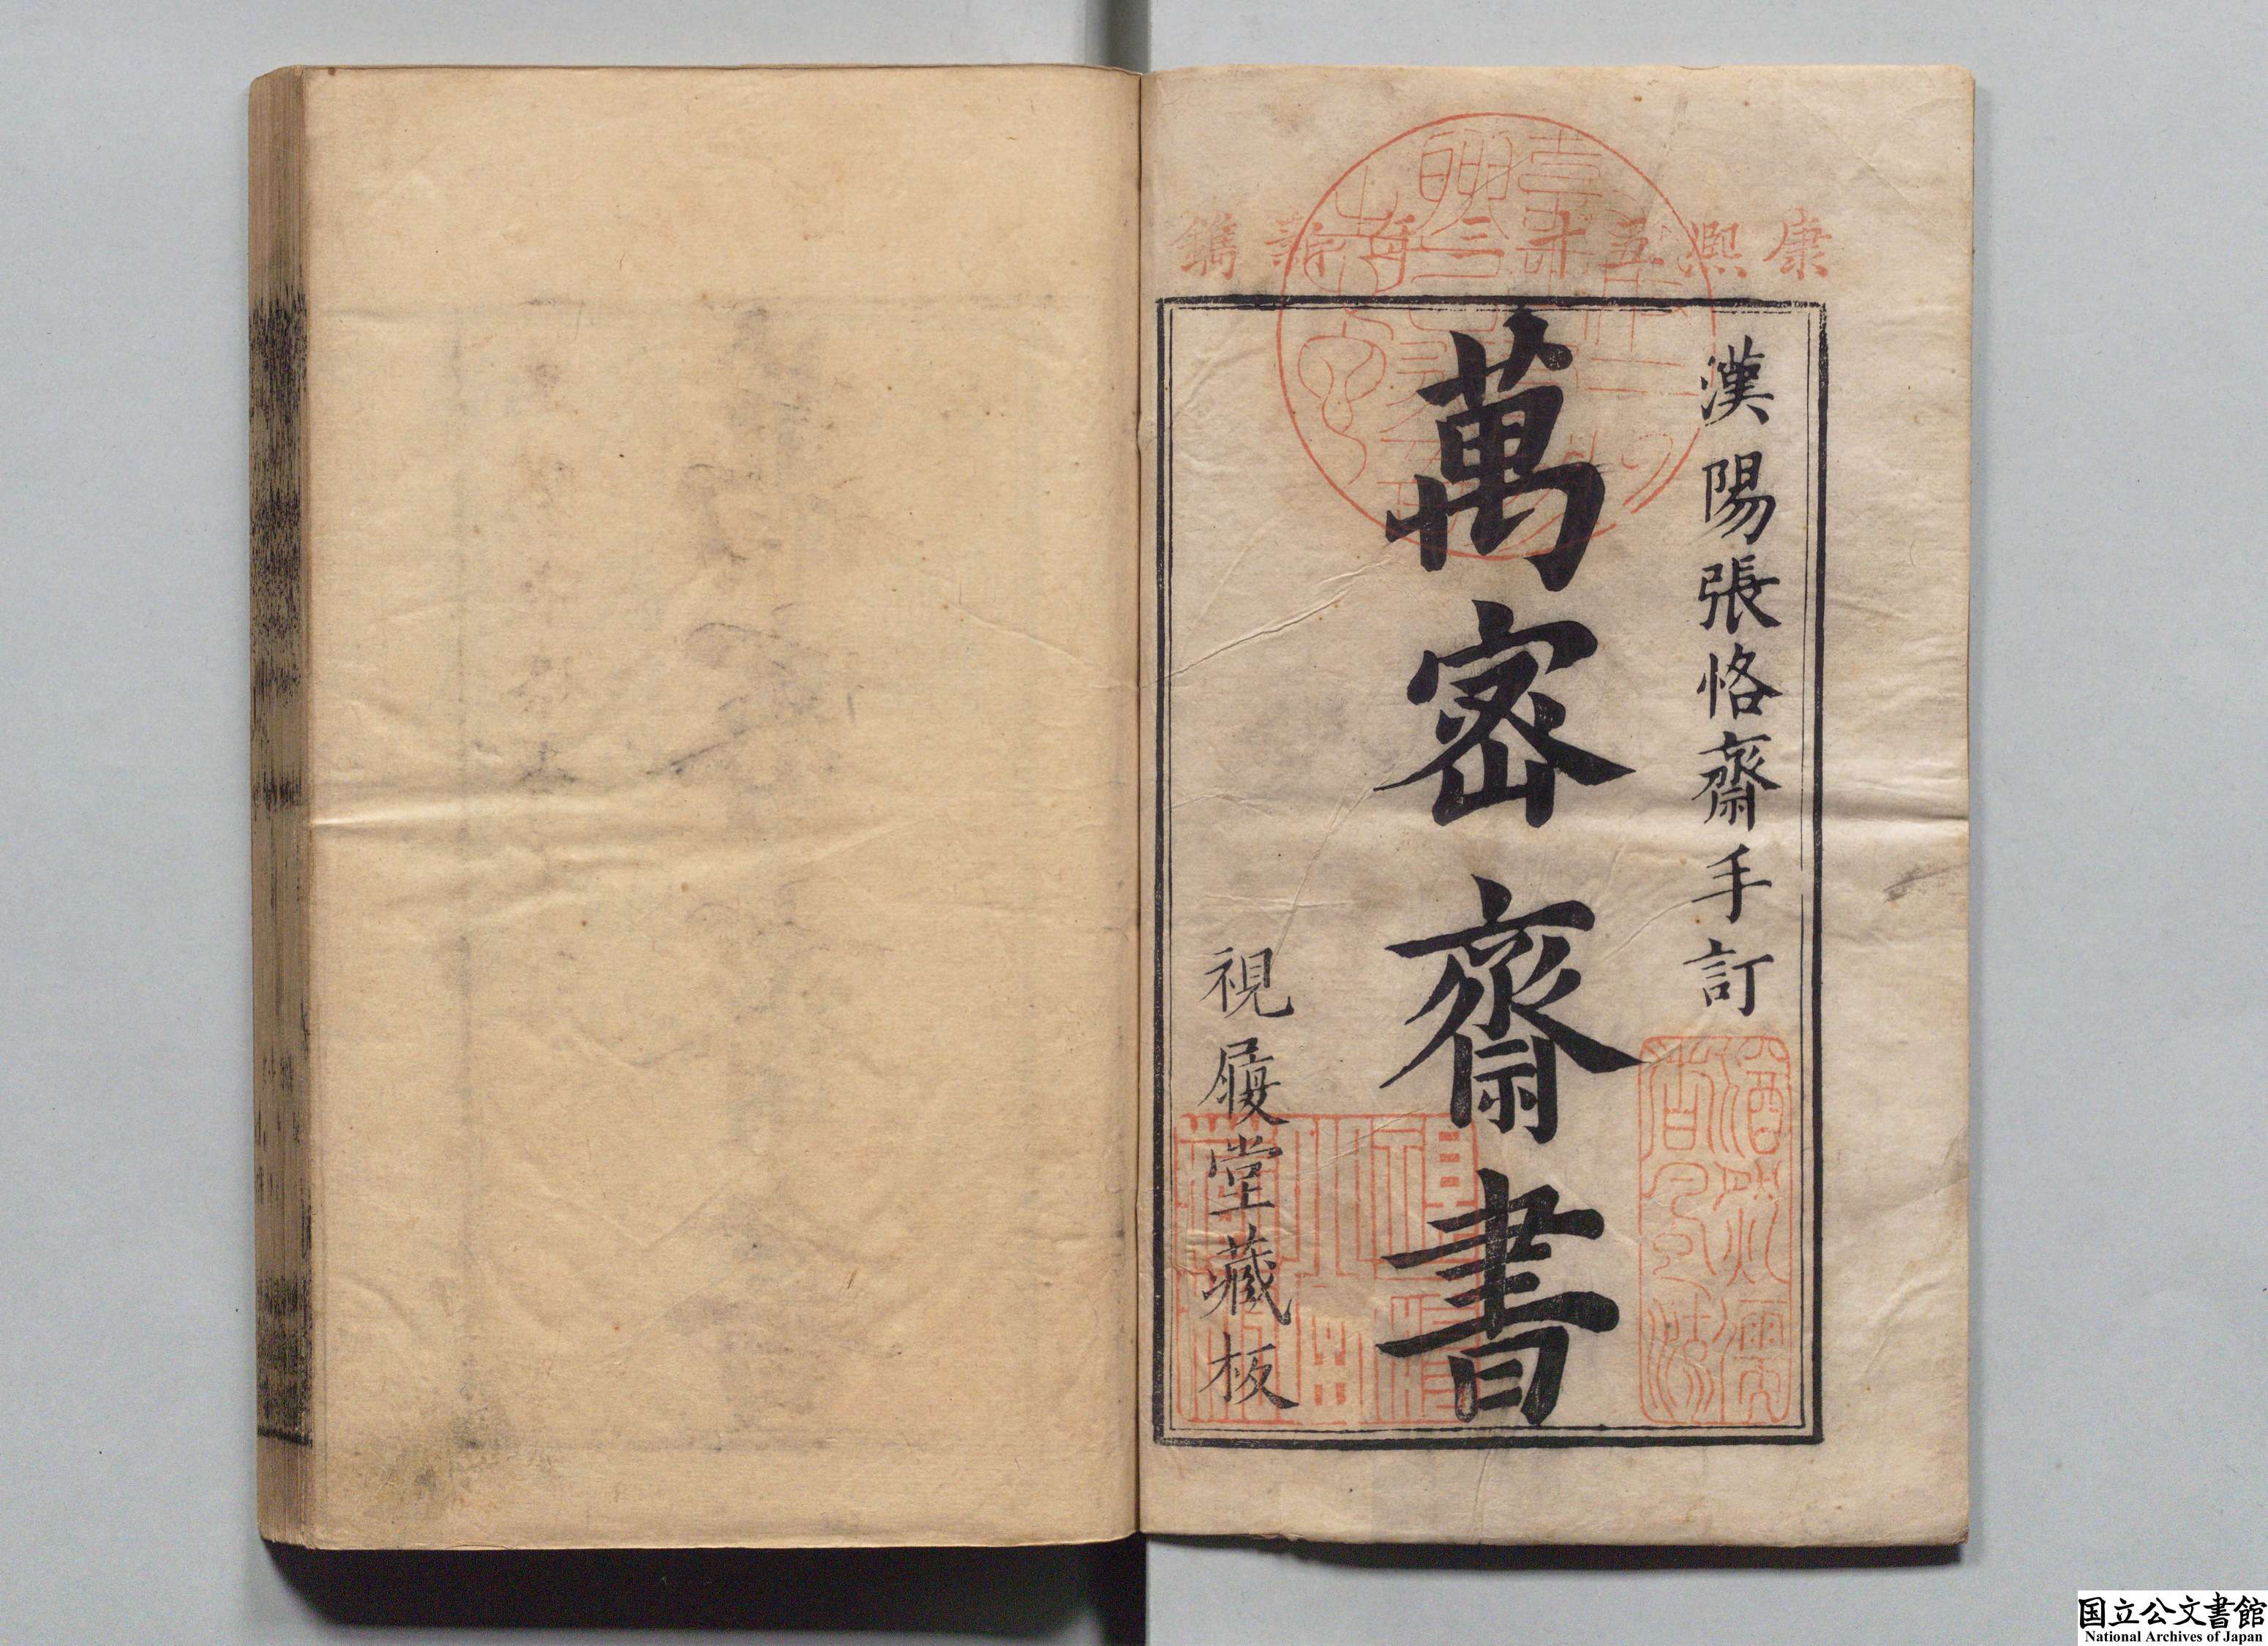 康熙五十三年新鐫
漢陽張恪齋手訂
萬密齋書
視履堂藏板
国立公文書館
National Archives of Japan